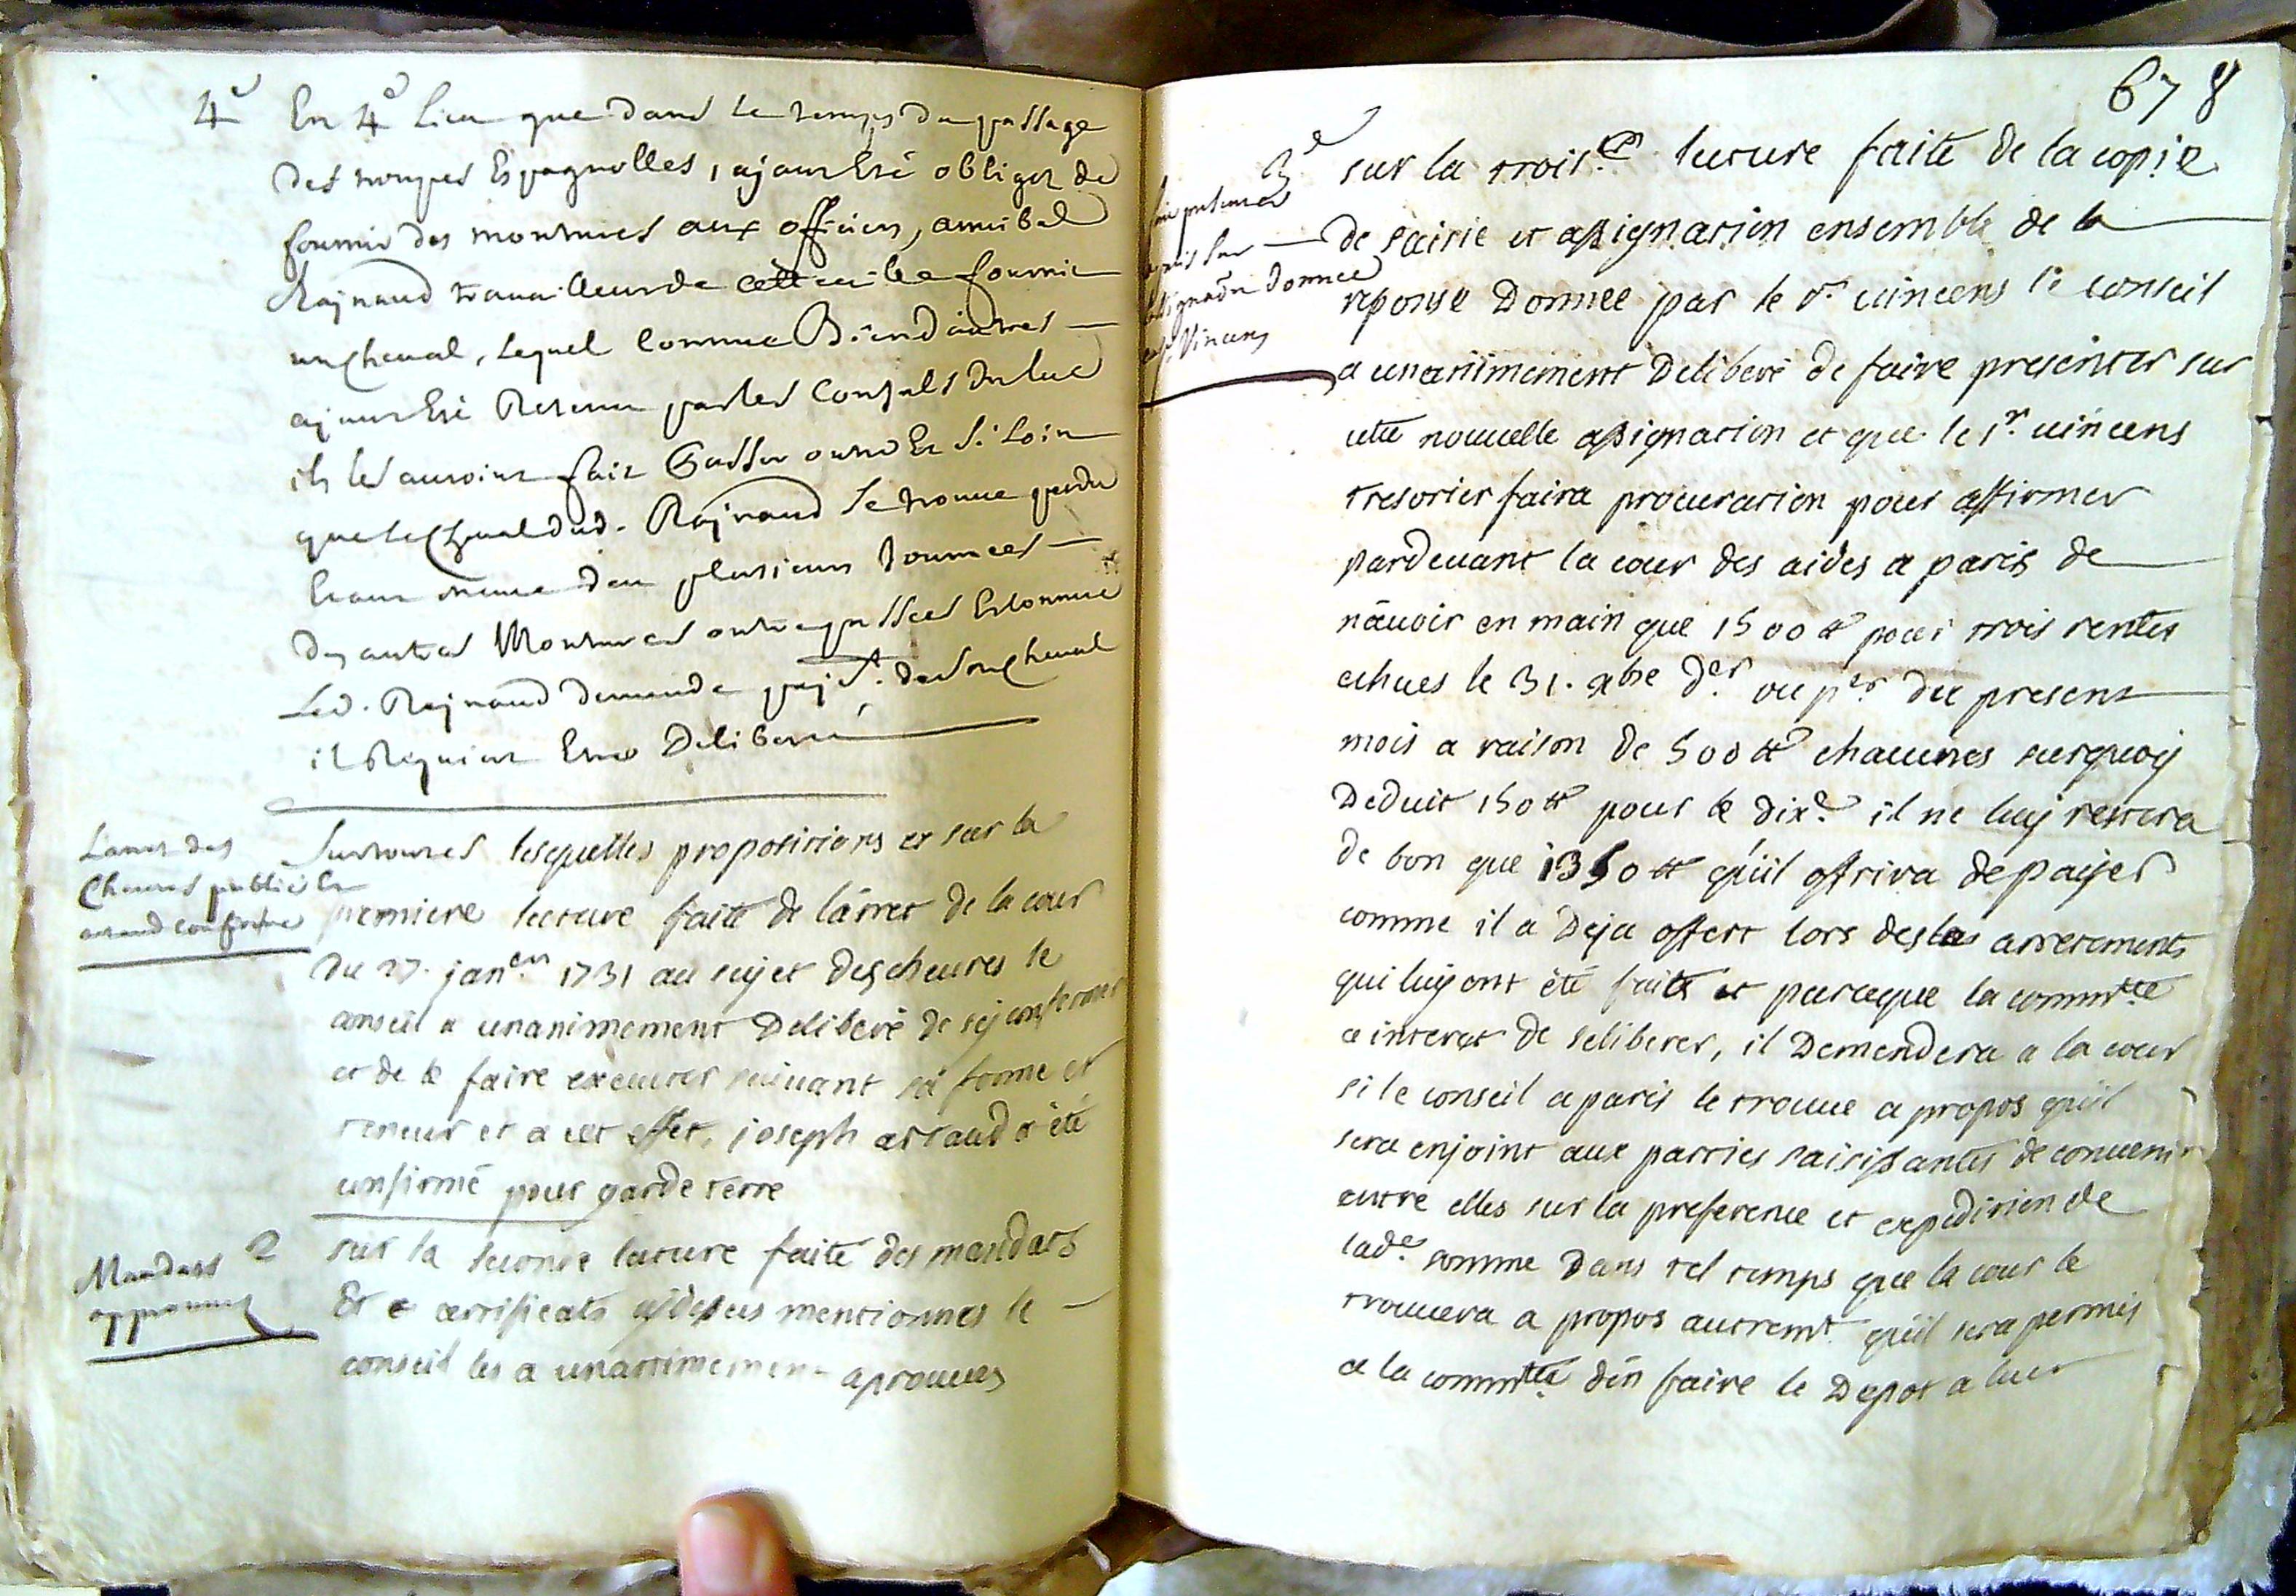 4e En 4e lieu que dans le temps du passage
des troupes Espagnolles, ajant Esté obligez de
fournir des montures aux officiers, annibal
Rajnaud travailleur de cette ville fournit
un cheval, lequel comme Bien d'autres
ajant Esté Retenu par les Consuls du luc
ils les auroint fait Passer outre Et si Loin
que le Cheval dud. Rajnaud se trouve perdu
Et aux même d'eu plusieurs Journées
Des autres Montures outrepassées Et comme
Led. Rajnaud demande pajt. de son cheval
il Requiert Estre Deliberé
Larret des
Chevres publié Et
arnaud confirme
Sur toutes lesquelles propositions et sur la
premiere lecture faite de l'arret de la cour
du 27. janer 1731 au sujet des chevres le
conseil a unanimement Deliberé de s'y conformer
et de le faire executer suivant sa forme et
teneur et a cet effet, joseph arnaud a été
confirmé pour garde terre
Mandats
approuvez
2 sur la seconde lecture faite des mandats
Et certificats cy dessus mentionnes le
conseil les a unanimement aprouves
678
3e sur la trois.e lecture faite de la copie
de saisie et assignation ensemble de la
reponse Donnée par le sr. vincens le conseil
a unanimement Deliberé de faire presenter sur
cette nouvelle assignation et que le sr. vincens
tresorier faira procuration pour affirmer
pardevant la cour des aides a paris de
n'avoir en main que 1500 ₶ pour trois rentes
echues le 31. xbre der ou per du present
mois a raison de 500 ₶ chacunes surquoy
Deduit 150 ₶ pour le dixe. il ne luy restera
de bon que 1350 ₶ qu'il offrira de payer
comme il a Deja offert lors des arretements
qui luy ont été faits et parceque la commté
a interet de se liberer, il Demendera a la cour
si le conseil a paris le trouve a propos qu'il
sera enjoint aux parties saisissantes de convenir
entre elles sur la preference et expedition de
lade. somme Dans tel temps que la cour le
trouvera a propos autremt. qu'il sera permis
a la commté d'en faire le Depot a leur
presenter
sur
donnée
Vincens